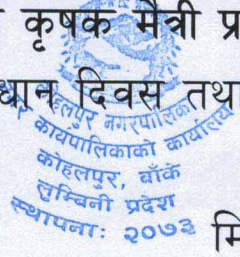 कृषक मैत्री प्र
धान दिवस तथा
कोहलपुर नगरपालिका
कार्यपालिकाको कार्यालय
कोहलपुर, बाँके
लुम्बिनी प्रदेश
स्थापना: २०७३
मि